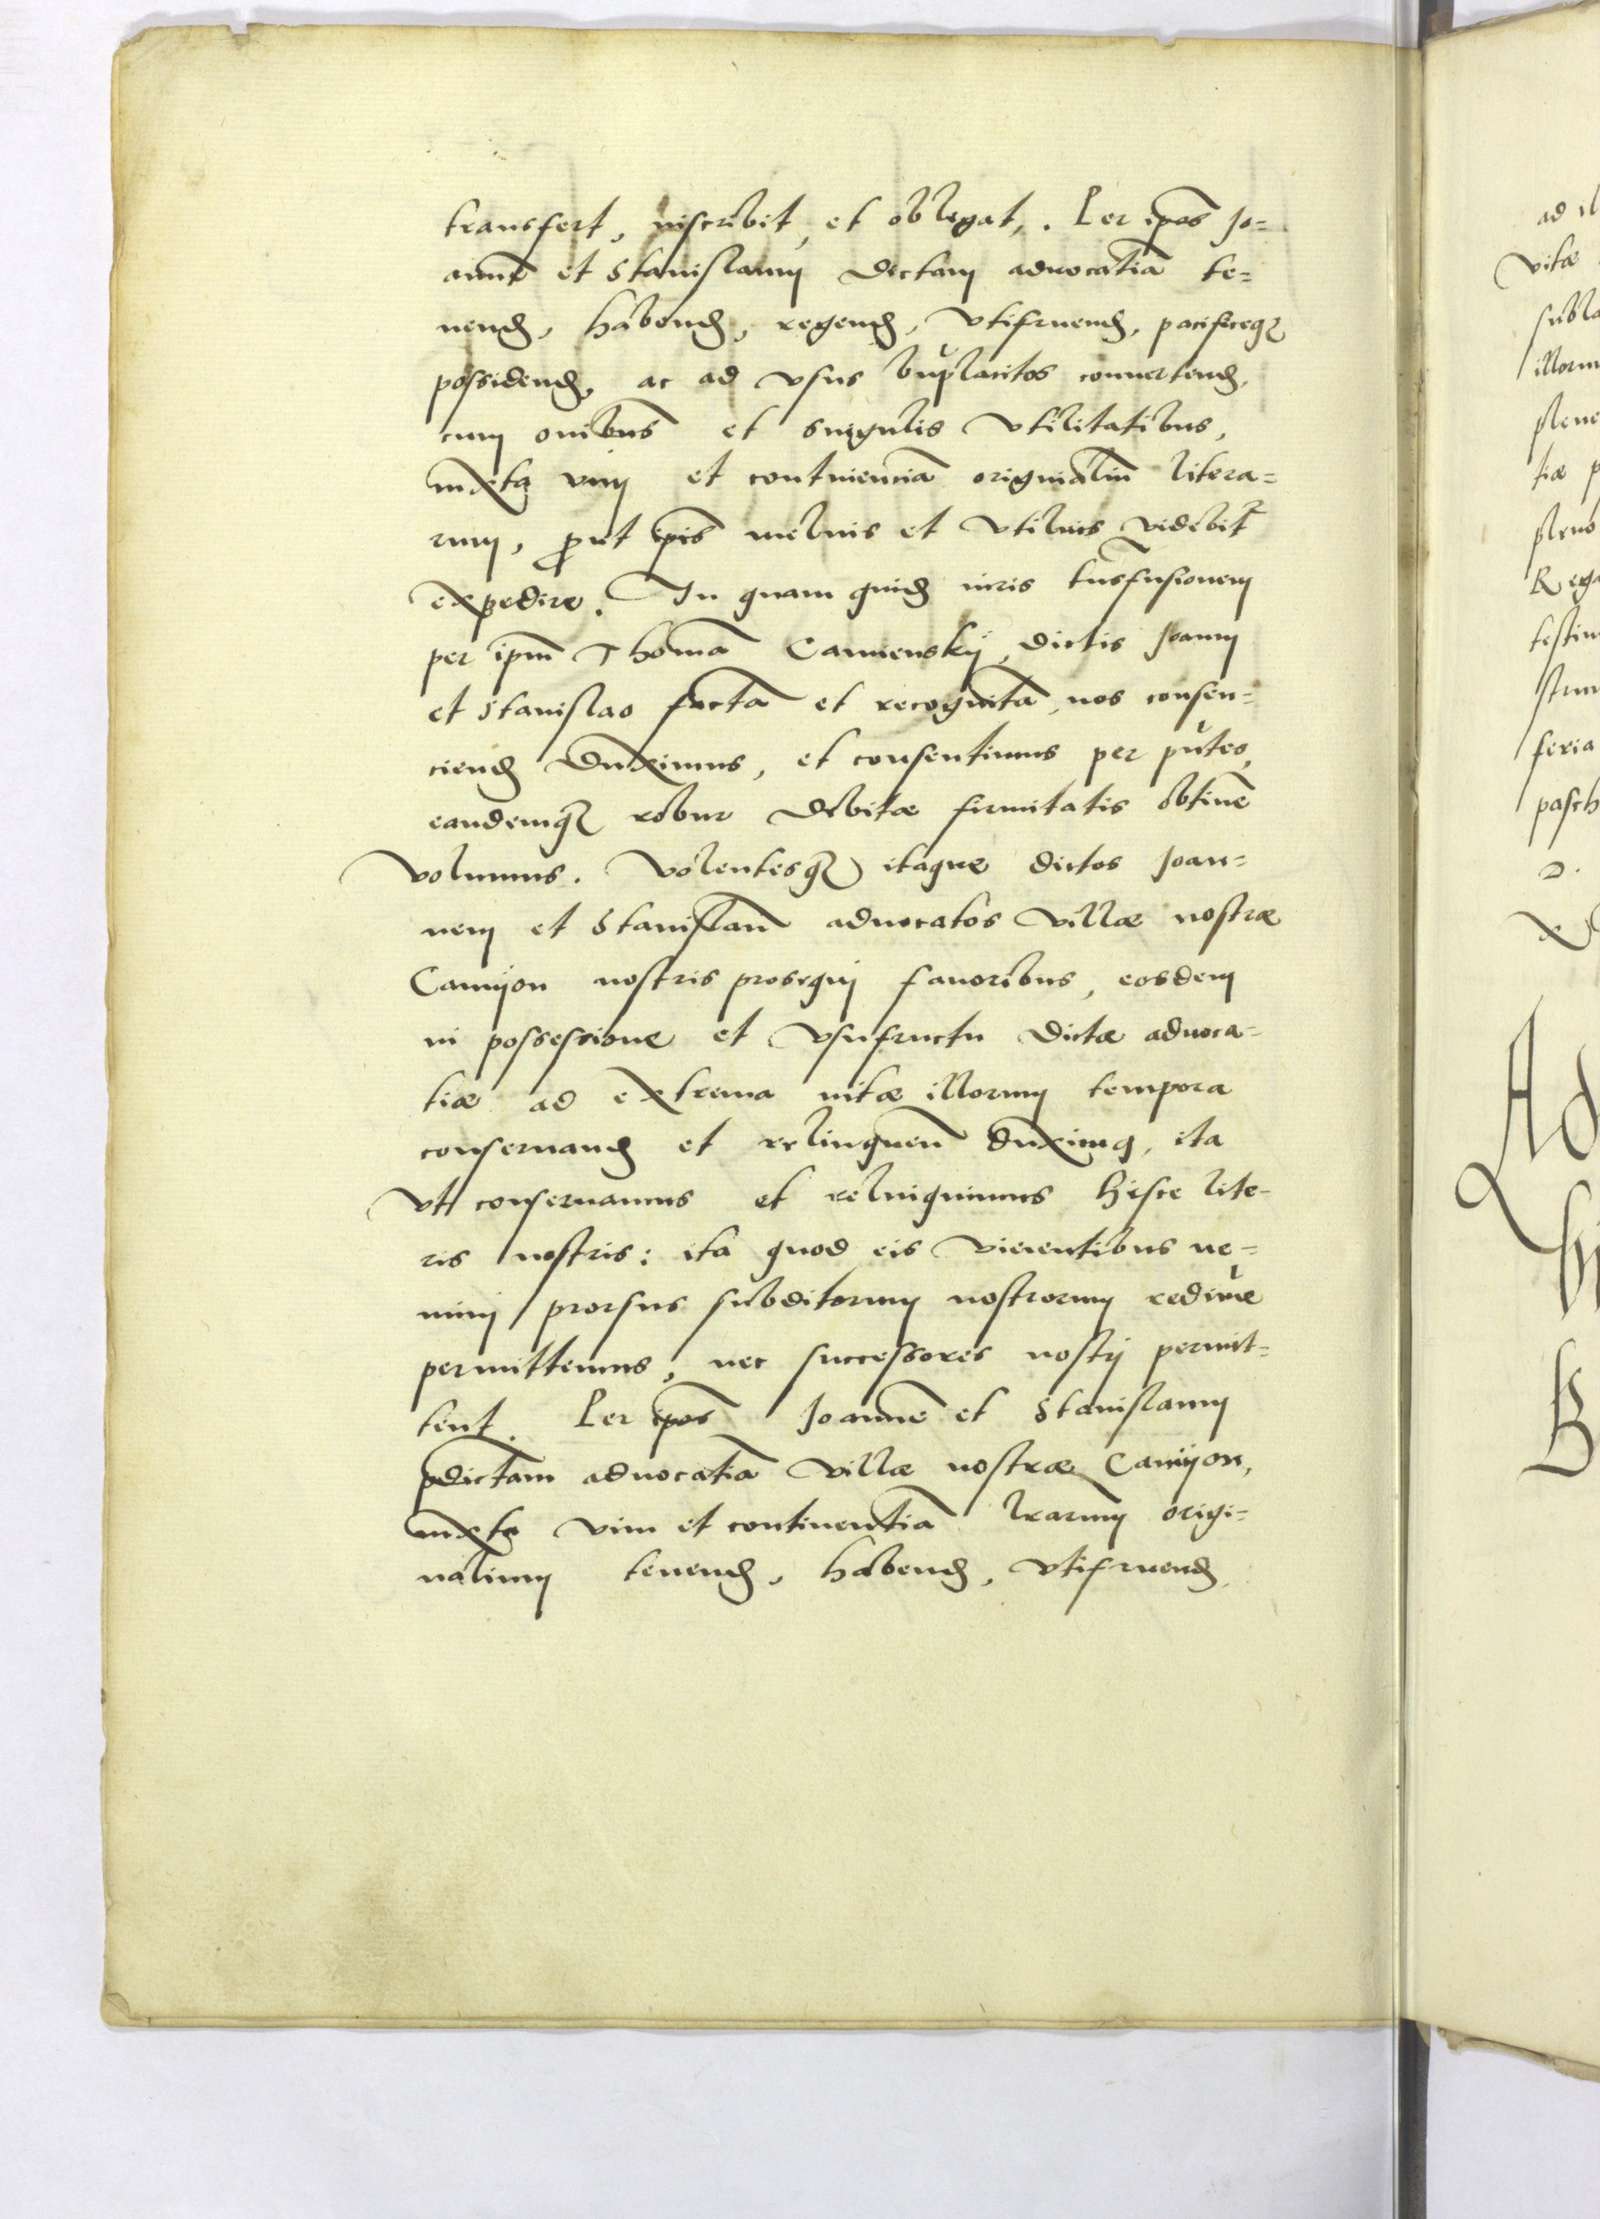 transfert, inscribit, et obligat, . Per ipōs Jo=
annē et Stanislaum dictam aduocatiā te=
nend, habend, regend, vtifruend, pacificeqꝫ
possidend, ac ad vsus bn̄placitos conuertend,
cum om̄ibus et singulis vtilitatibus,
iuxta vim et continenciā originaliū litera=
rum, ꝓut ip̄is melius et vtilius videbit̄
expedire. In quam quid iuris tn̄sfusionem
per ip̄m Thomā Camensky, dictis Joanni
et Stanislao factā et recognitā, nos consen=
ciend duximus, et consentimus per pn̄tes,
eandemqꝫ robur debitæ firmitatis obtinē
volumus. Volentesqꝫ itaque dictos Joan=
nem et Stanislaū aduocatos villæ nostræ
Camyon nostris prosequi fauoribus, eosdem
in possessione et vsufructu dictæ aduoca=
tiæ ad extrema uitæ illorum tempora
conseruand et relinquen̄ duximꝰ, ita
vt conseruamus et relinquimus hisce lite=
ris nostris: ita quod eis viuentibus ne=
mini prorsus subditorum nostrorum redimē
permittemus, nec successores nostrj permit=
tent. Per ipōs Joannē et Stanislaum
p̄dictam aduocatiā villæ nostræ Camyon,
iuxta vim et continentiā l̄rarum origi=
nalium tenend, habend, vtifruend,
ad
vitæ
illorum
tiæ
Rega
feria
pasch
Ad